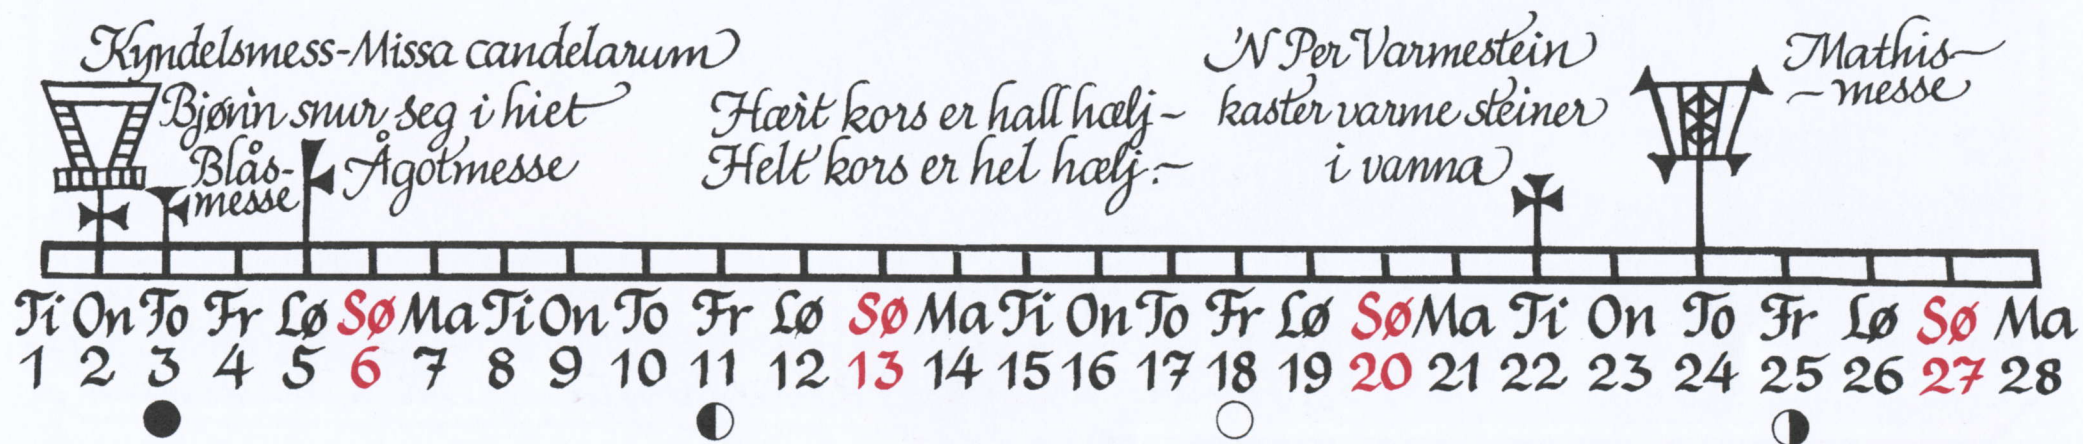 Kyndelsmess-Missa candelarum
Bjørin snur seg i hiet
Blås-
messe
Ågotmesse
Hært kors er hall hælj-
Helt kors er hel hælj.-
'N Per Varmestein
kaster varme steiner
i vanna
Mathis-
-messe
Ti On To Fr Lø Sø Ma Ti On To Fr Lø Sø Ma Ti On To Fr Lø Sø Ma Ti On To Fr Lø Sø Ma
1 2 3 4 5 6 7 8 9 10 11 12 13 14 15 16 17 18 19 20 21 22 23 24 25 26 27 28